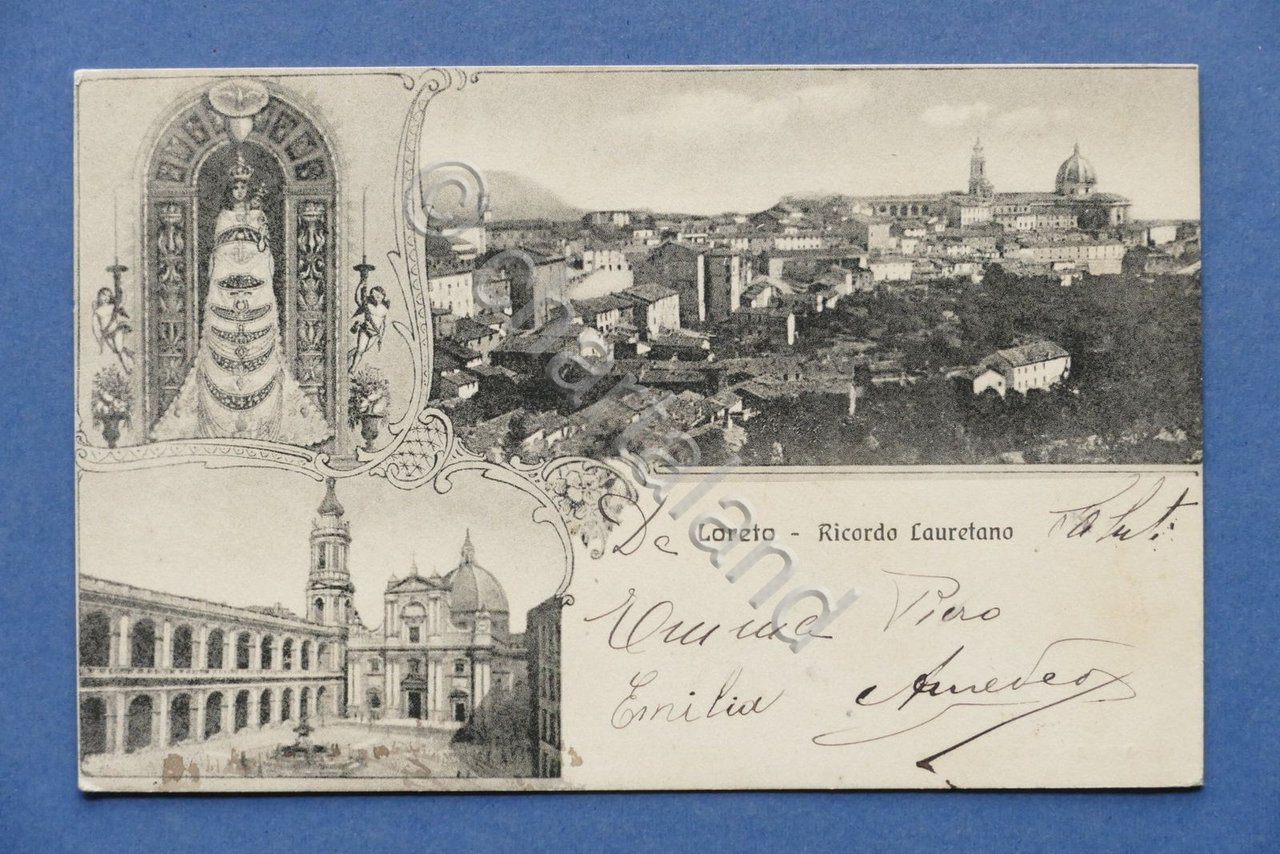 Da Loreto - Ricordo Lauretano Saluti
Emma Piero
Emilia Amedeo
© Cartoland